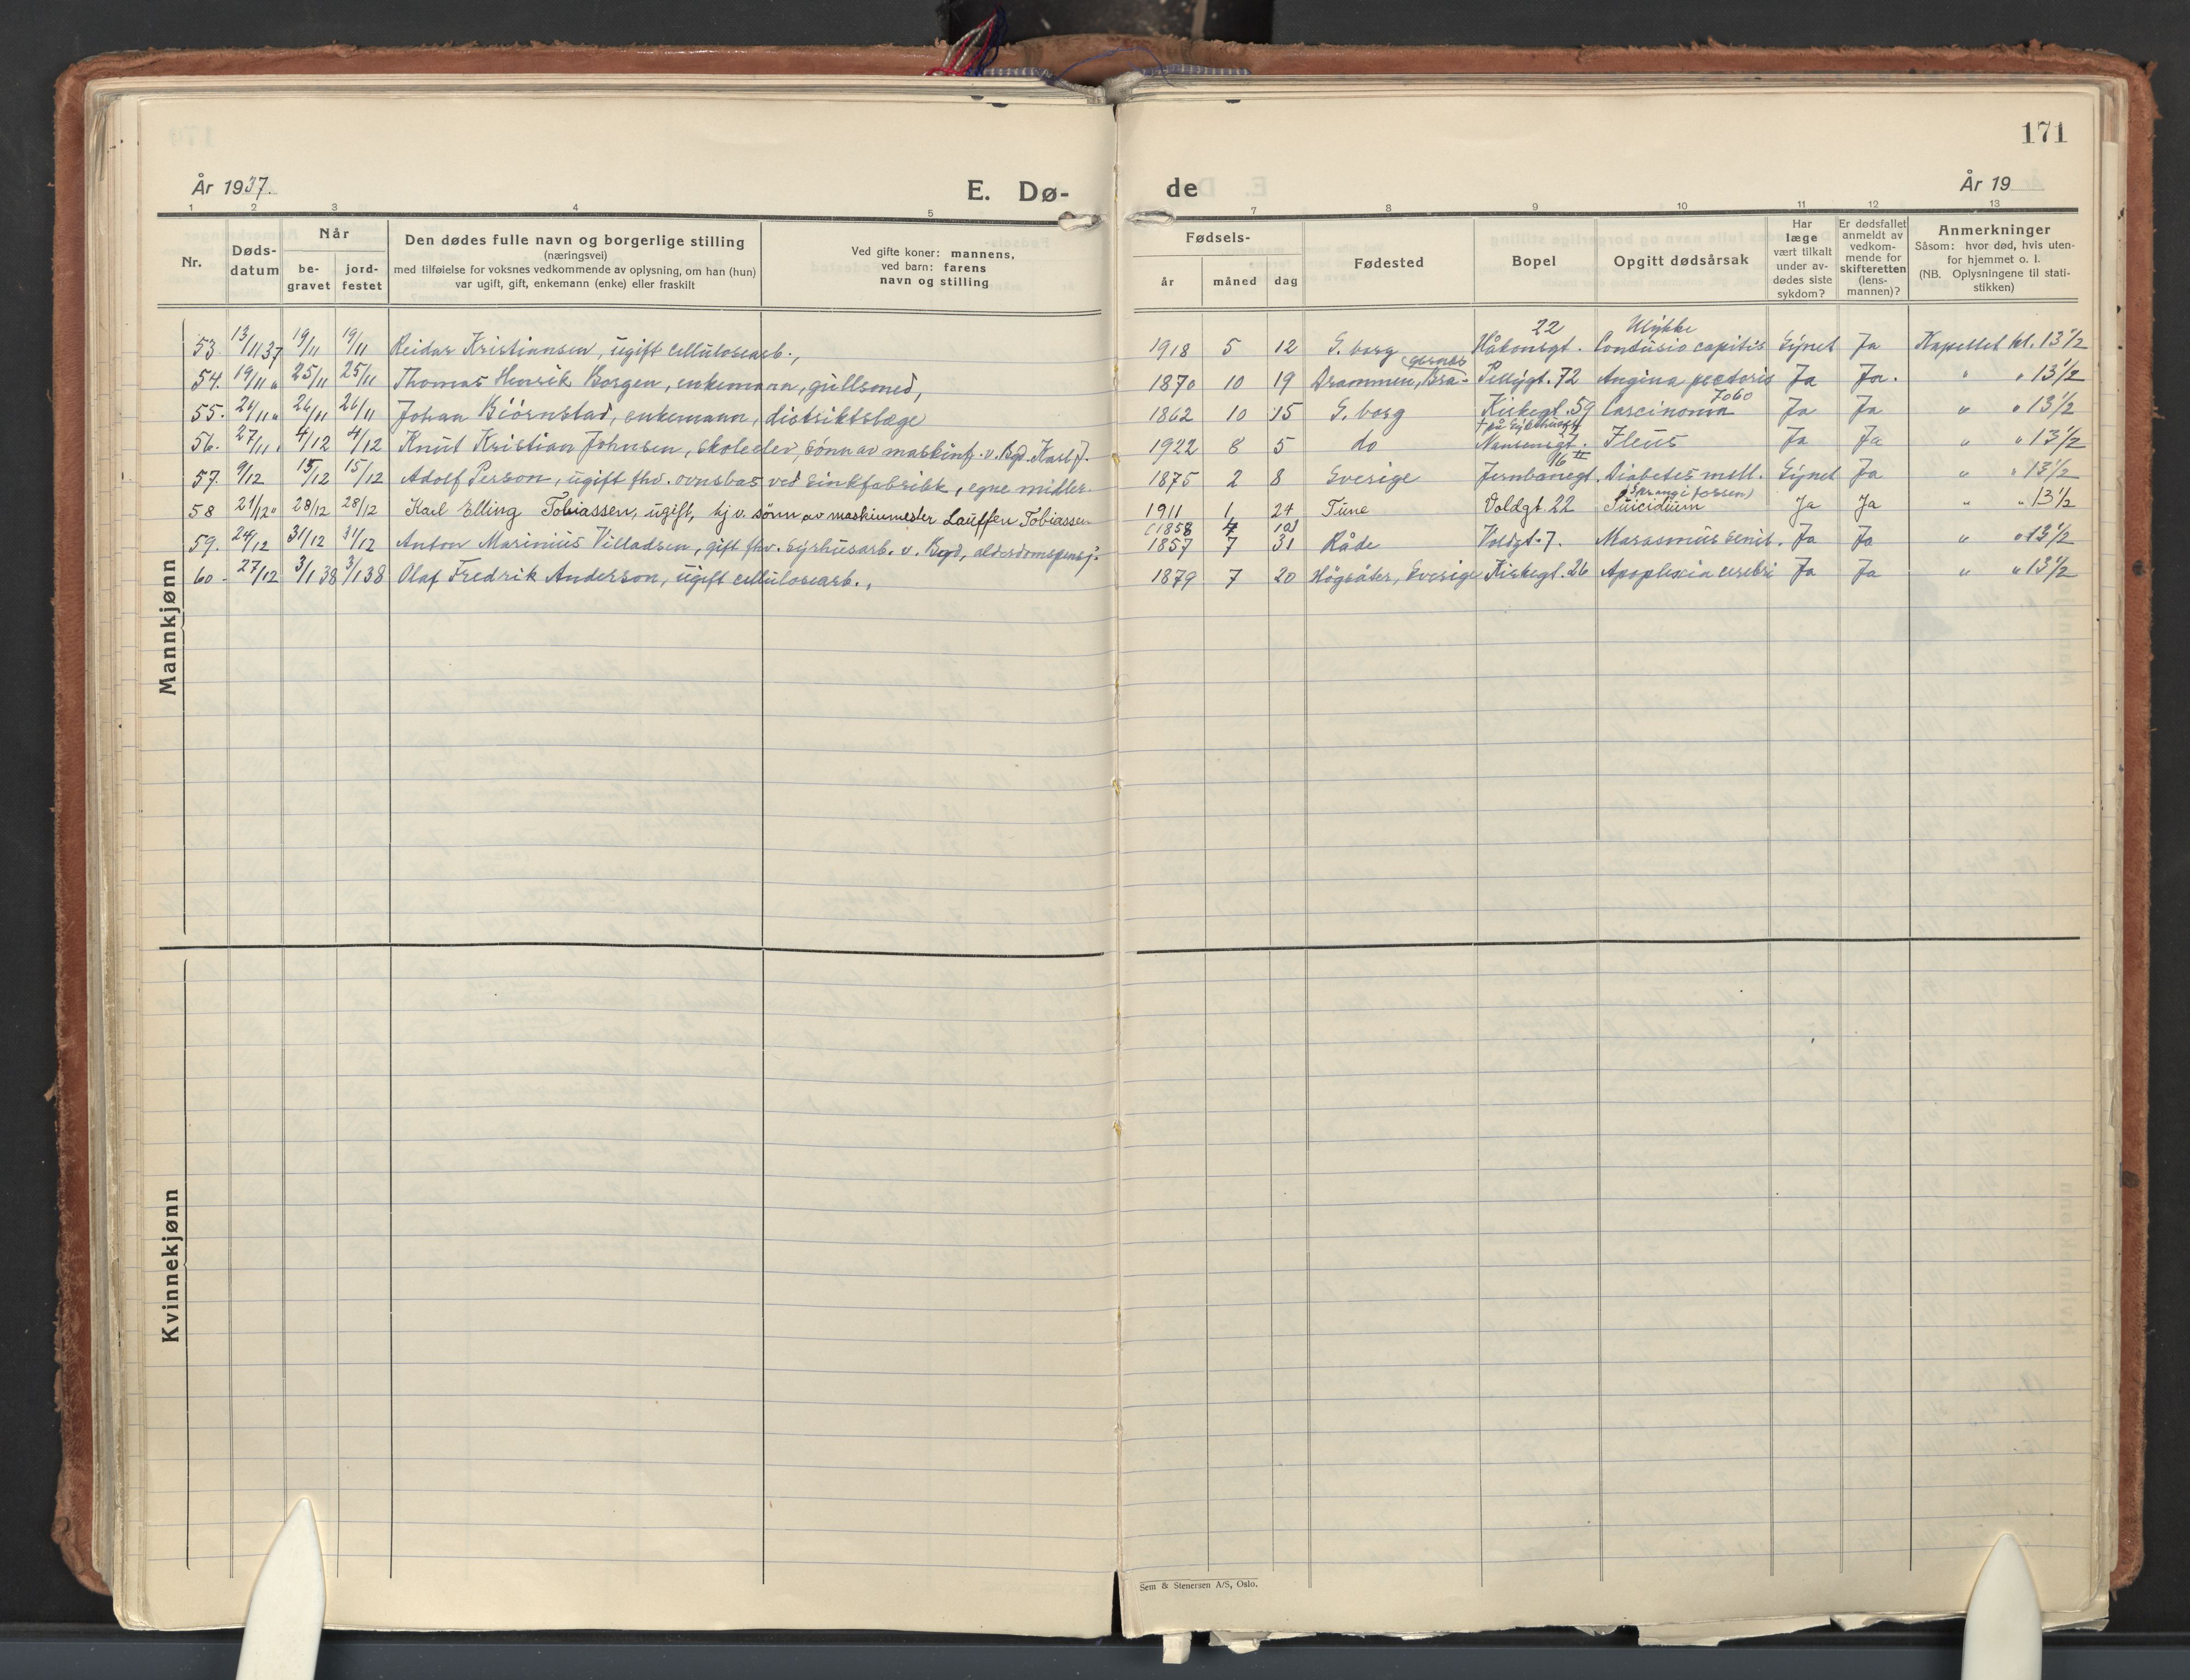 171
År 1937.
E. Dø-
de
År 19
1 2 3 4 5 7 8 9 10 11 12 13
Nr.
Døds-
datum
Når
be-
gravet
jord-
festet
Den dødes fulle navn og borgerlige stilling
(næringsvei)
med tilføielse for voksnes vedkommende av oplysning, om han (hun)
var ugift, gift, enkemann (enke) eller fraskilt
Ved gifte koner: mannens,
ved barn: farens
navn og stilling
Fødsels-
år måned dag
Fødested
Bopel
Opgitt dødsårsak
Har
læge
vært tilkalt
under av-
dødes siste
sykdom?
Er dødsfallet
anmeldt av
vedkom-
mende for
skifteretten
(lens-
mannen)?
Anmerkninger
Såsom: hvor død, hvis uten-
for hjemmet o. l.
(NB. Oplysningene til stati-
stikken)
Mannkjønn
22 Ulykke
53. 13/11 37 19/11 19/11 Reidar Kristiansen, ugift cellulosearb., 1918 5 12 S. borg Håkonsgt. Contusio capitis Synet Ja Kapellet kl. 13 1/2
gernes
54. 19/11 " 25/11 25/11 Thomas Henrik Borgen, enkemann, gullsmed, 1870 10 19 Drammen, Bra- Pellygt. 72 Angina pectoris Ja Ja. " " 13 1/2
7060
55. 20/11 " 26/11 26/11 Johan Biörnstad, enkemann, distriktslæge 1862 10 15 S. borg Kirkegt. 59 Carcinoma Ja Ja " " 13 1/2
† på Sykehuset
56. 27/11 " 4/12 4/12 Knut Kristian Johnsen, skoleelev, sønn av maskinf. v. Bgd. Karl J. 1922 8 5 do Nansensgt. Ileus Ja Ja " " 13 1/2
16 II
57. 9/12 15/12 15/12 Adolf Person, ugift fhv. ovnsbas ved sinkfabrikk, egne midler 1875 2 8 Sverige Jernbanegt. Diabetes mell. Synet Ja " " 13 1/2
(Sprang i fossen)
58 21/12 " 28/12 28/12 Karl Elling Tobiassen, ugift, hj. v. sønn av maskinmester Lauffen Tobiassen 1911 1 24 Tune Voldgt. 22 Suicidium Ja Ja " " 13 1/2
(1858 4 10)
59. 24/12 31/12 31/12 Anton Marinius Villadsen, gift fhv. syrhusarb. v. Bgd, alderdomspensj. 1857 7 31 Råde Voldgt. 7. Marasmus senil. Ja Ja " " 13 1/2
60. 27/12 3/1 38 3/1 38 Olaf Fredrik Anderson, ugift cellulosearb., 1879 7 20 Högsäter, Sverige Kirkegt. 26 Apoplexia cerebri Ja Ja " " 13 1/2
Kvinnekjønn
Sem & Stenersen A/S, Oslo.